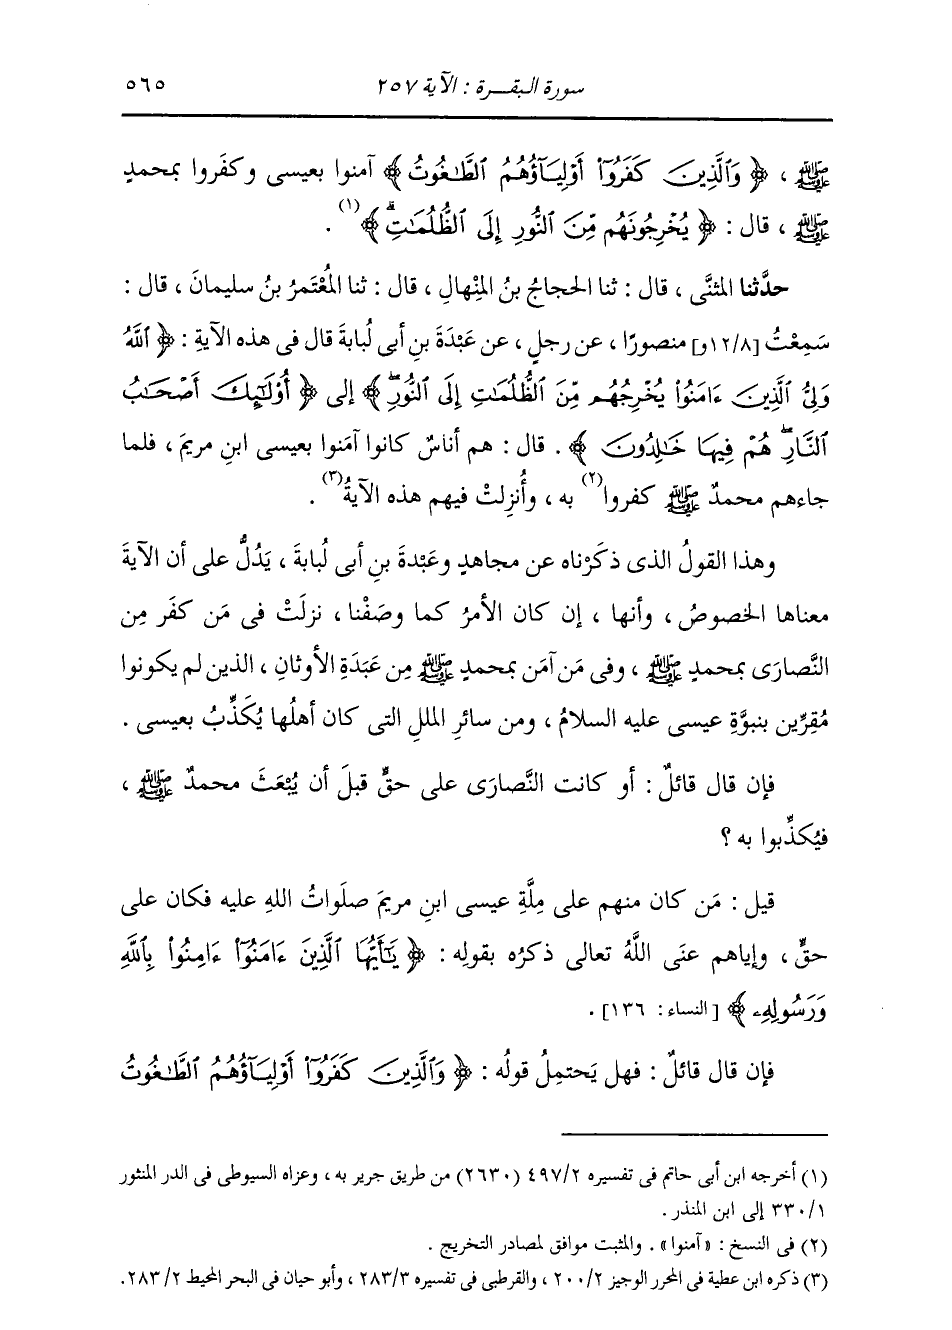 سورة البقرة : الآية ٢٥٧ ٥٦٥
ﷺ ، ﴿ وَٱلَّذِينَ كَفَرُوٓا۟ أَوْلِيَآؤُهُمُ ٱلطَّـٰغُوتُ ﴾ آمنوا بعيسى وكفَروا بمحمدٍ
ﷺ ، قال : ﴿ يُخْرِجُونَهُم مِّنَ ٱلنُّورِ إِلَى ٱلظُّلُمَـٰتِۗ ﴾(١) .
حدَّثنا المثنَّى ، قال : ثنا الحجاجُ بنُ المِنْهالِ ، قال : ثنا المُعْتَمرُ بنُ سليمانَ ، قال :
سَمِعْتُ [١٢/٨و] منصورًا ، عن رجلٍ ، عن عَبْدَةَ بنِ أبى لُبابةَ قال فى هذه الآيةِ : ﴿ ٱللَّهُ
وَلِىُّ ٱلَّذِينَ ءَامَنُوا۟ يُخْرِجُهُم مِّنَ ٱلظُّلُمَـٰتِ إِلَى ٱلنُّورِۖ ﴾ إلى ﴿ أُو۟لَـٰٓئِكَ أَصْحَـٰبُ
ٱلنَّارِۖ هُمْ فِيهَا خَـٰلِدُونَ ﴾ . قال : هم أناسٌ كانوا آمَنوا بعيسى ابنِ مريمَ ، فلما
جاءهم محمدٌ ﷺ كفروا(٢) به ، وأُنزِلتْ فيهم هذه الآيةُ(٣) .
وهذا القولُ الذى ذكَرْناه عن مجاهدٍ وعَبْدةَ بنِ أبى لُبابةَ ، يَدُلُّ على أن الآيةَ
معناها الخصوصُ ، وأنها ، إن كان الأمرُ كما وصَفْنا ، نزلَتْ فى مَن كفَر مِن
النَّصارَى بمحمدٍ ﷺ ، وفى مَن آمَن بمحمدٍ ﷺ مِن عَبَدَةِ الأوثانِ ، الذين لم يكونوا
مُقِرِّين بنبوَّةِ عيسى عليه السلامُ ، ومن سائرِ المللِ التى كان أهلُها يُكَذِّبُ بعيسى .
فإن قال قائلٌ : أو كانت النَّصارَى على حقٍّ قبلَ أن يُبْعَثَ محمدٌ ﷺ ،
فيُكذِّبوا به ؟
قيل : مَن كان منهم على مِلَّةِ عيسى ابنِ مريمَ صلَواتُ اللهِ عليه فكان على
حقٍّ ، وإياهم عنَى اللَّهُ تعالى ذكرُه بقولِه : ﴿ يَـٰٓأَيُّهَا ٱلَّذِينَ ءَامَنُوٓا۟ ءَامِنُوا۟ بِٱللَّهِ
وَرَسُولِهِۦ ﴾ [ النساء : ١٣٦] .
فإن قال قائلٌ : فهل يَحتمِلُ قولُه : ﴿ وَٱلَّذِينَ كَفَرُوٓا۟ أَوْلِيَآؤُهُمُ ٱلطَّـٰغُوتُ
(١) أخرجه ابن أبى حاتم فى تفسيره ٤٩٧/٢ (٢٦٣٠) من طريق جرير به ، وعزاه السيوطى فى الدر المنثور
٣٣٠/١ إلى ابن المنذر .
(٢) فى النسخ : «آمنوا» . والمثبت موافق لمصادر التخريج .
(٣) ذكره ابن عطية فى المحرر الوجيز ٢٠٠/٢ ، والقرطبى فى تفسيره ٢٨٣/٣ ، وأبو حيان فى البحر المحيط ٢٨٣/٢.